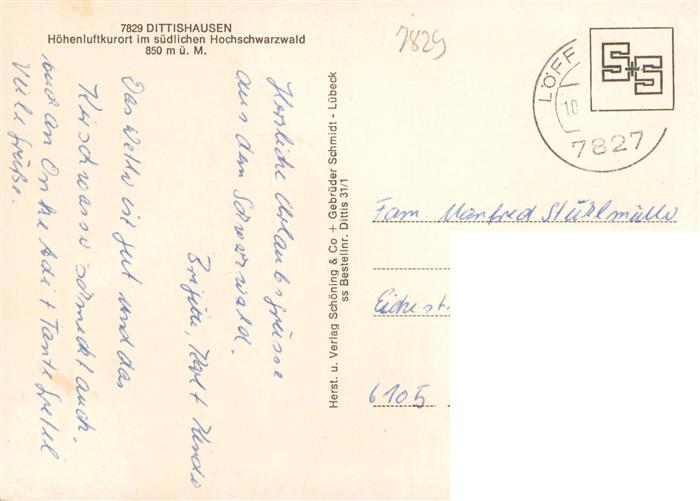 7829 DITTISHAUSEN
Höhenluftkurort im südlichen Hochschwarzwald
850 m ü. M.
7829
LÖFF
10
7827
S+S
Herzliche Urlaubsgrüsse
aus dem Schwarzwald.
Brigitte, Karl + Kinder
Das Wetter ist gut und das
Kirschwasser schmeckt auch.
und an Onkel Adi + Tante Gretel
Viele Grüße.
Herst. u. Verlag Schöning & Co + Gebrüder Schmidt - Lübeck
ss Bestellnr. Dittis 31/1
Fam. Manfred Stühlmüller
Eichest
6105